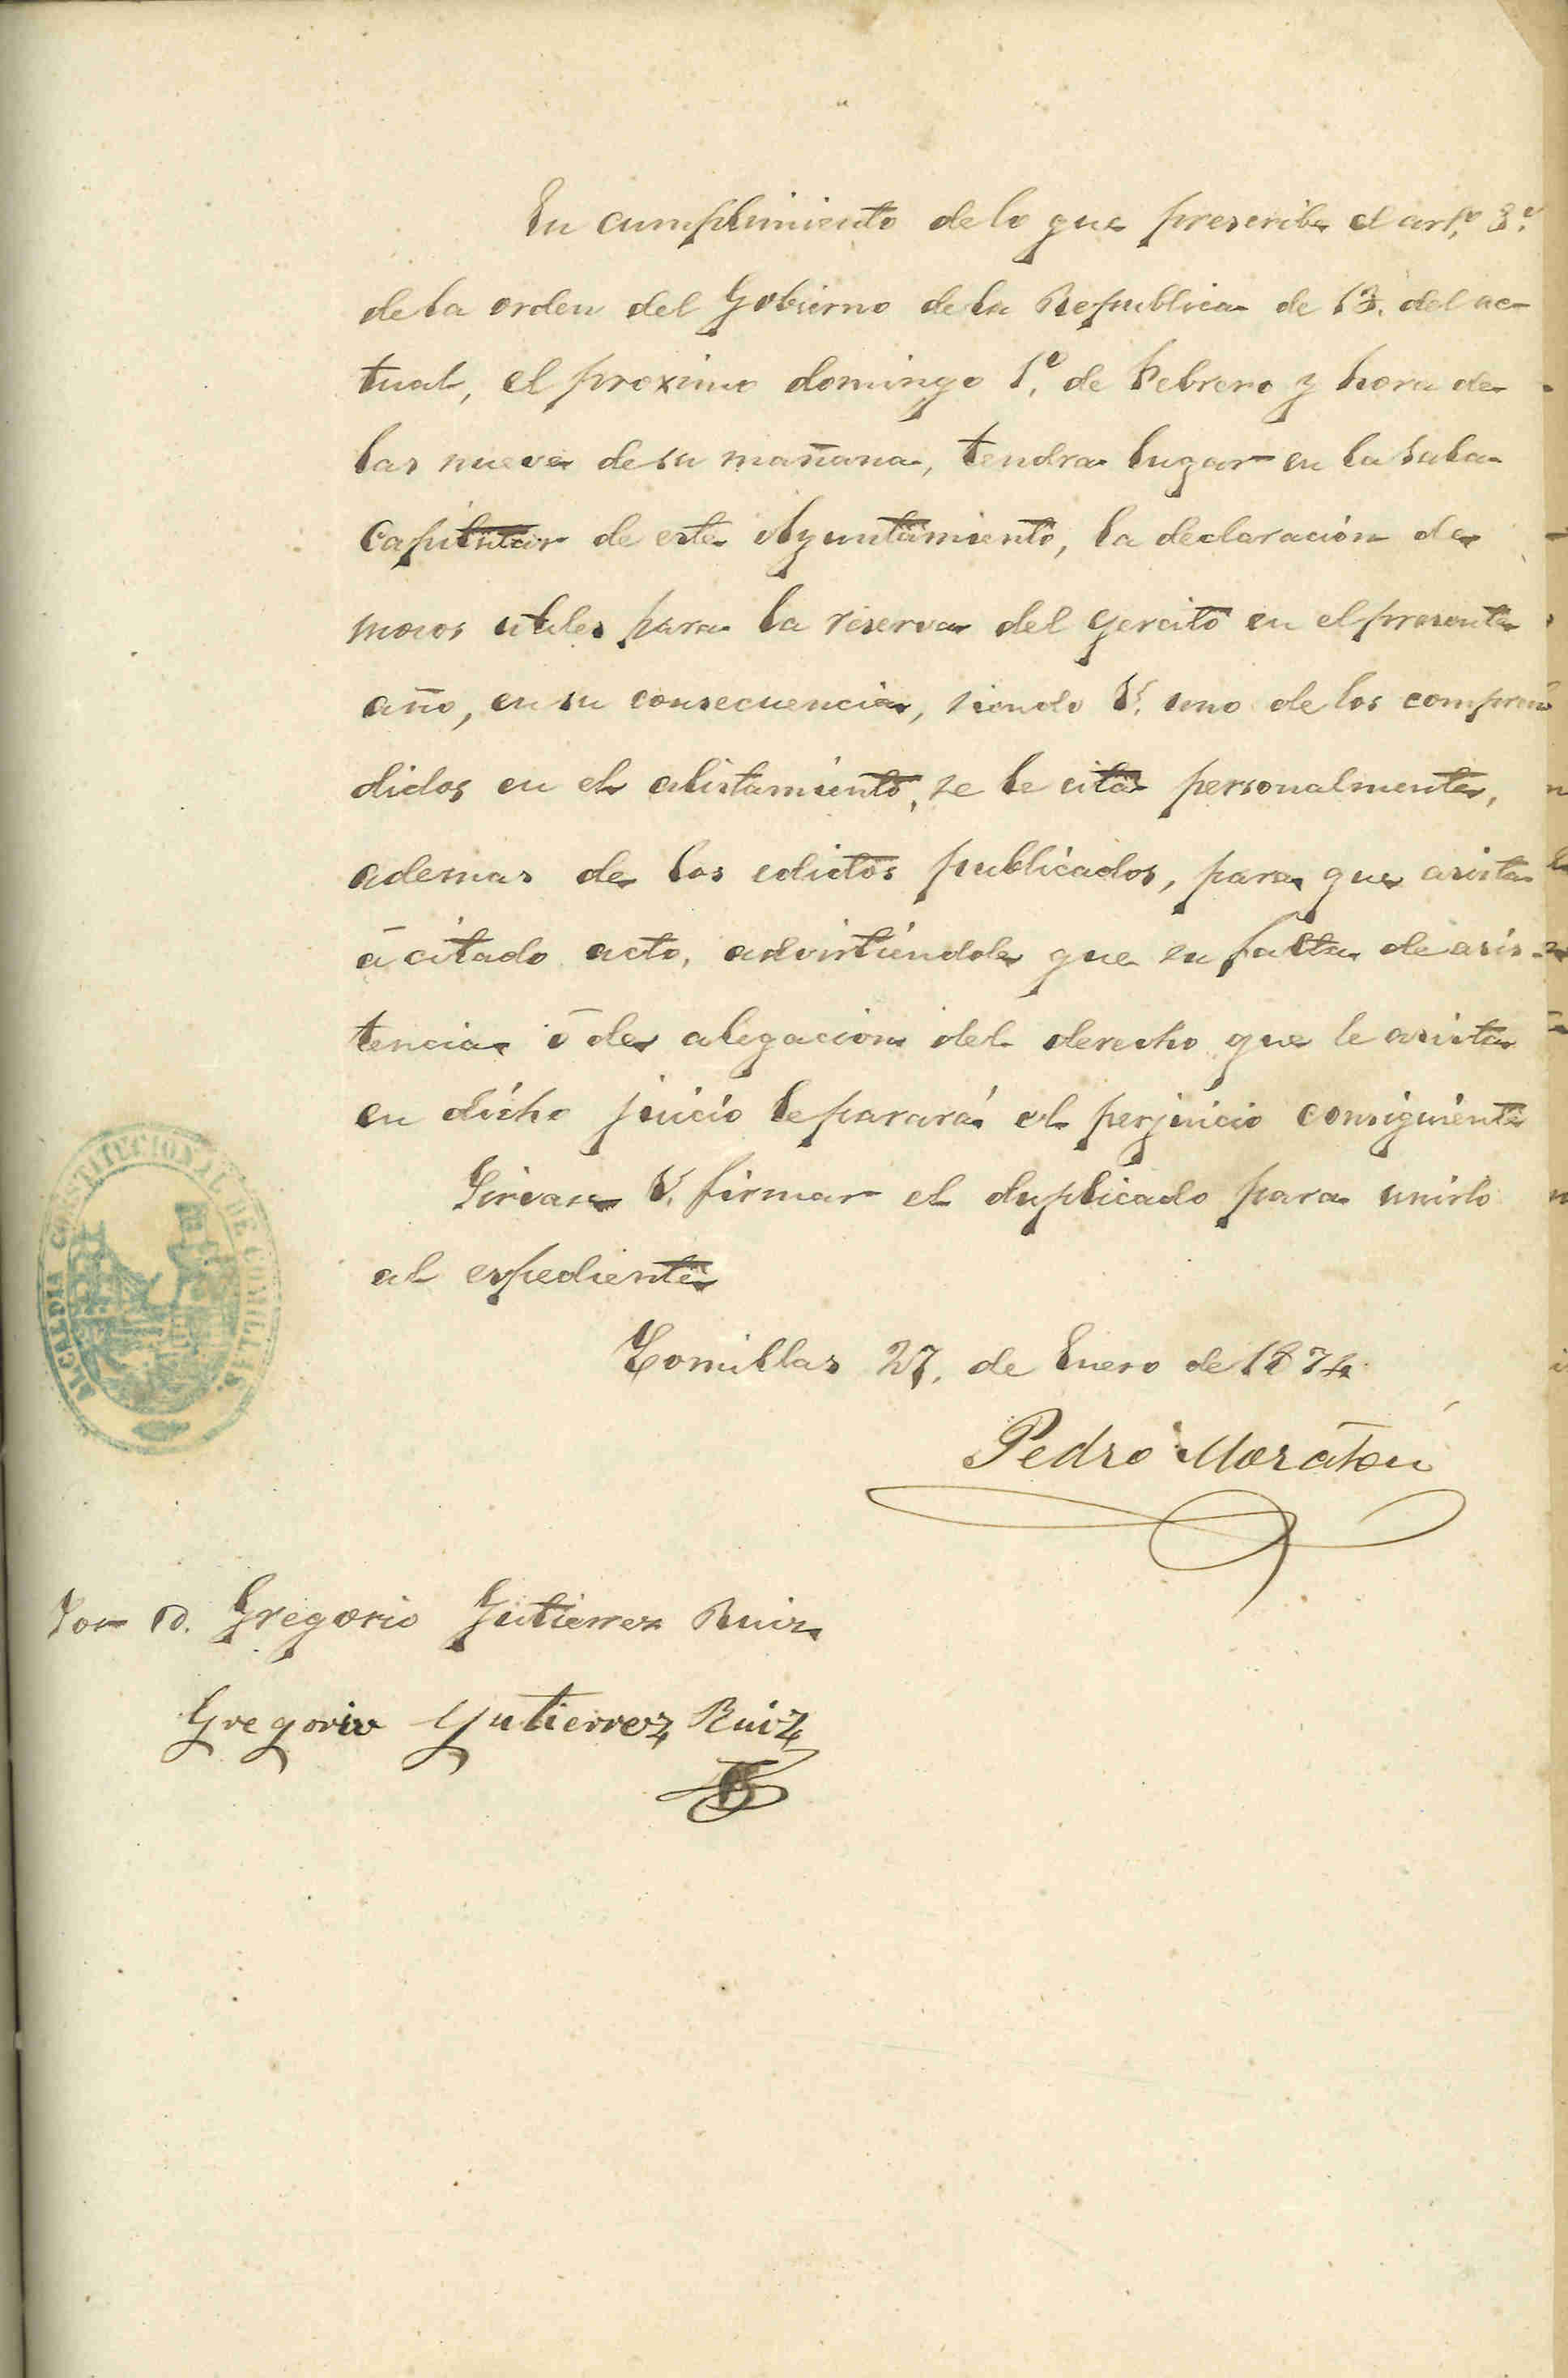 En cumplimiento de lo que prescribe el artº 3º
de la orden del Gobierno de la Republica de 13. del ac-
tual, el proximo domingo 1º de Febrero y hora de
las nueve de su mañana, tendra lugar en la sala
Capitular de este Ayuntamiento, la declaración de
mozos utiles para la reserva del egercito en el presente
año, en su consecuencia, siendo V. uno de los compren
didos en el alistamiento, se le cita personalmente,
ademas de los edictos publicados, para que asista
á citado acto, advirtiéndole que su falta de asis-
tencia ó de alegacion del derecho que le asista
en dicho juicio le parará el perjuicio consiguiente
Sirvase V. firmar el duplicado para unirlo
al espediente
Comillas 27. de Enero de 1874
Pedro Moratón
ALCALDIA CONSTITUCIONAL DE COMILLAS.
Sor D. Gregorio Gutierrez Ruiz
Gregorio Gutierrez Ruiz